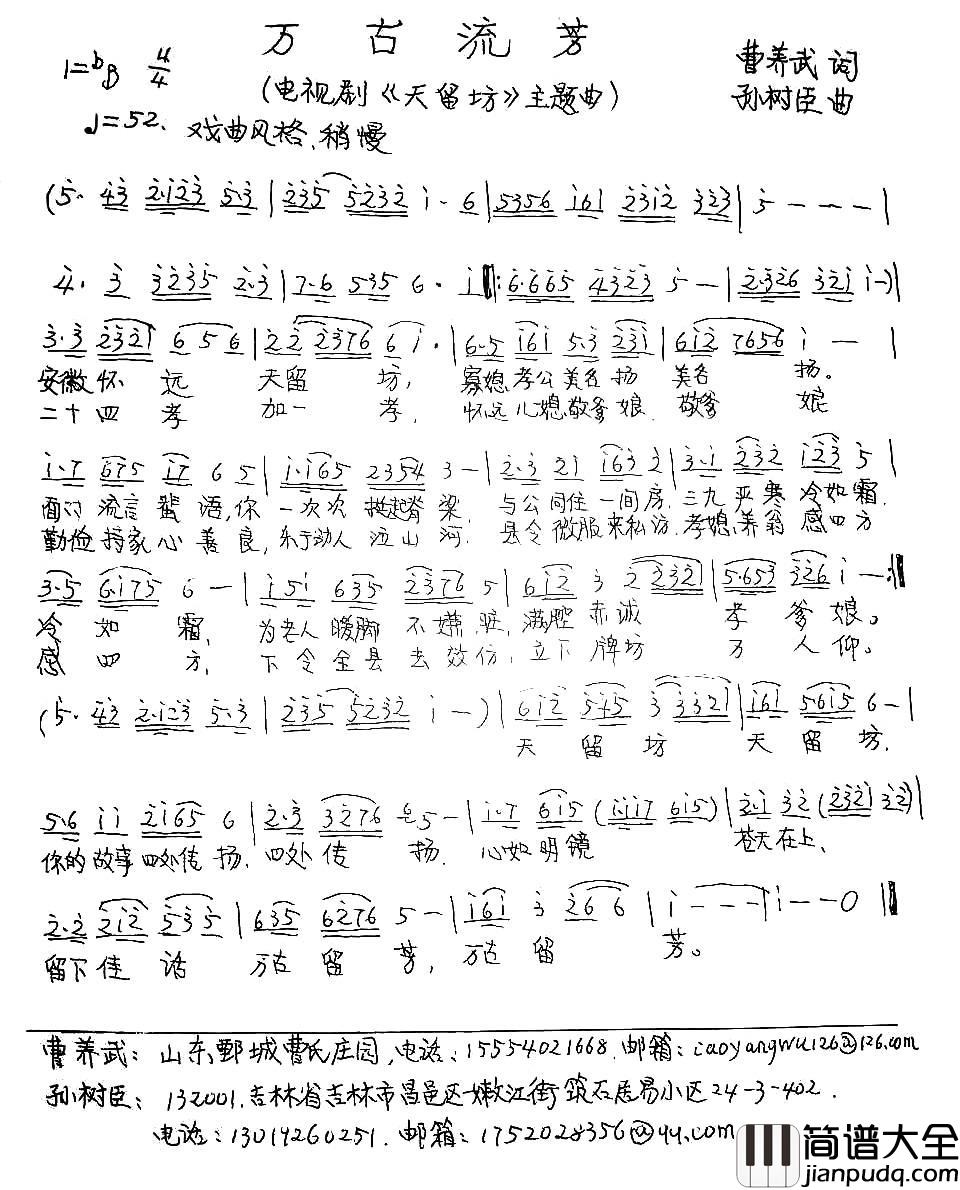 万古流芳
1=bB 4/4
(电视剧《天留坊》主题曲)
曹养武 词
孙树臣 曲
♩=52. 戏曲风格、稍慢
(5· 43 2·123 5·3 | 235 5232 1· 6 | 5356 161 2312 323 | 5 - - - |
4· 3 3235 2·3 | 7·6 535 6· 1 ‖: 6·665 4323 5 - | 2·326 321 1 -) |
3·3 2321 6 5 6 | 22 2376 6 1· | 6·5 161 5·3 231 | 612 7656 1 - |
安徽怀远 天留坊, 寡媳孝公美名扬 美名扬。
二十四孝 加一孝, 怀远儿媳敬爹娘 敬爹娘
1·7 675 17 6 5 | 1·165 2354 3 - | 2·3 21 163 2 | 3·1 232 123 5 |
面对流言蜚语,你一次次挺起脊梁, 与公同住一间房, 三九严寒冷如霜.
勤俭持家心善良, 乐于助人 山河. 县令微服来私访, 孝媳养翁感四方
3·5 6·175 6 - | 1 51 635 2376 5 | 612 3 2 232 | 5·653 326 1 - :‖
冷如霜, 为老人暖脚不嫌脏, 满腔赤诚孝爹娘。
感四方, 下令全县去效仿, 立下牌坊万人仰。
(5· 43 2·123 5·3 | 235 5232 1 -) | 612 545 3 3321 | 161 5·615 6 - |
天留坊 天留坊,
5·6 11 2165 6 | 2·3 3276 6 5 - | 1·7 615 (1·117 615) | 2·1 32 (2321 32) |
你的故事四处传扬, 四处传扬. 心如明镜 苍天在上、
2·2 212 535 | 635 6276 5 - | 161 3 26 6 | 1 - - - | 1 - - 0 ‖
留下佳话 万古留芳, 万古留芳。
曹养武: 山东鄄城曹氏庄园,电话:15554021668.邮箱:caoyangwu126@126.com
孙树臣: 132001.吉林省吉林市昌邑区嫩江街筑石居易小区24-3-402.
电话:13019260251.邮箱:1752028356@qq.com
简谱大全
jianpudq.com